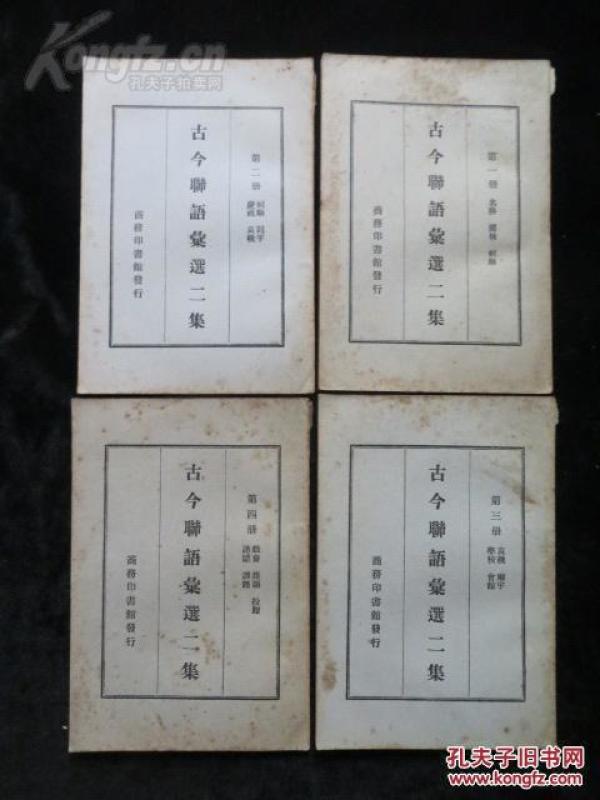 Kongfz.cn
孔夫子拍卖网
第一册
名勝
古今聯語彙選二集
商務印書館發行
第二册
祠廟
慶祝 哀輓
古今聯語彙選二集
商務印書館發行
第三册
哀輓 廟宇
學校 會館
古今聯語彙選二集
商務印書館發行
第四册
古今聯語彙選二集
商務印書館發行
孔夫子旧书网
www.kongfz.com